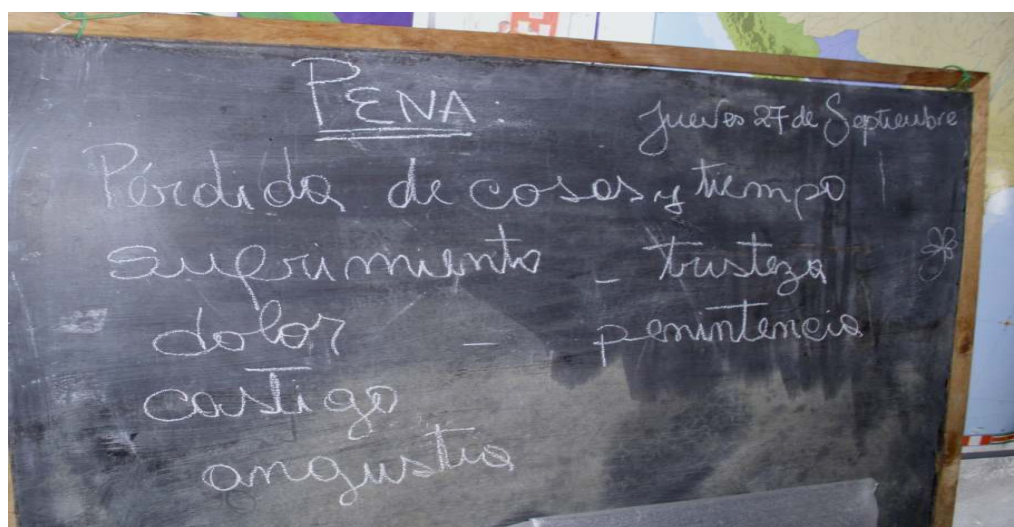 PENA:
Jueves 27 de Septiembre
Pérdida de cosas y tiempo
sufrimiento - tristeza
dolor - penintencia
castigo
angustia